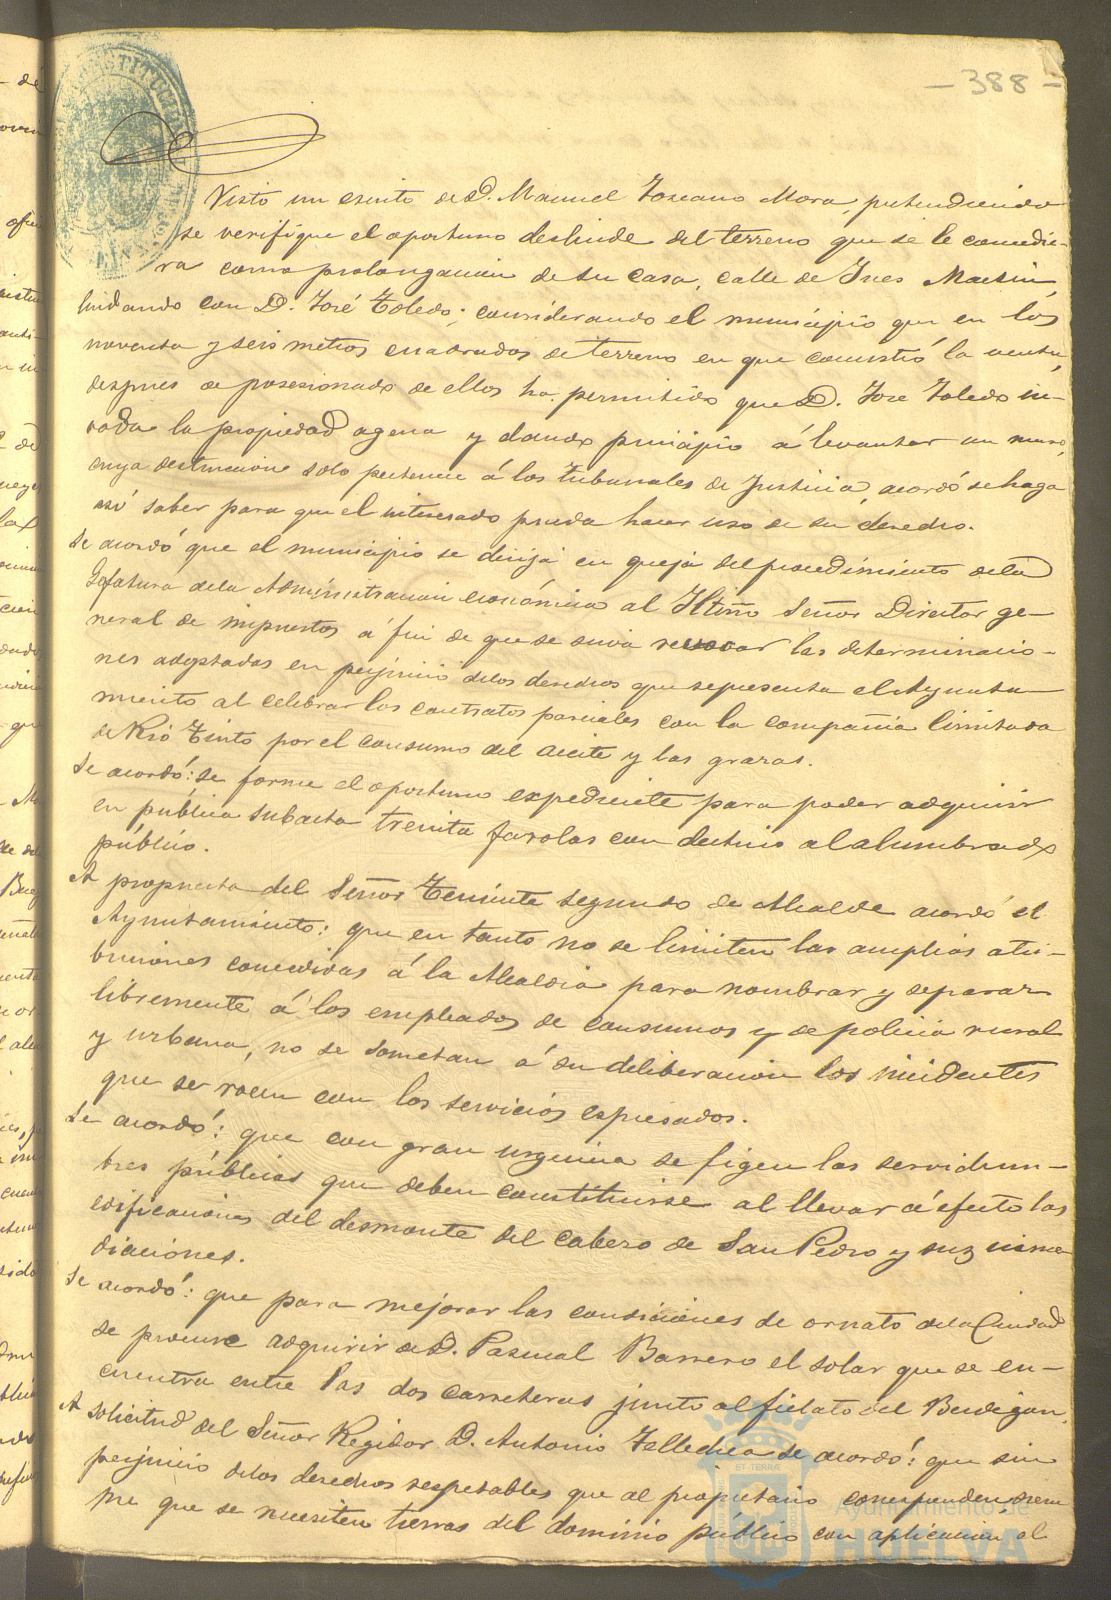 - 388 -
Visto un escrito de D. Manuel Toscano Mora, pretendiendo
se verifique el oportuno deslinde del terreno que se le concedie-
ra como prolongacion de su casa, calle de Ines Martin,
lindando con D. José Toledo; considerando el municipio que en los
noventa y seis metros cuadrados de terreno en que consistió la venta,
despues de posesionado de ellos ha permitido que D. Jose Toledo in-
vada la propiedad agena y dando principio á levantar un muro,
cuya destruccion solo pertenece á los tribunales de Justicia, acordó se haga
así saber para que el interesado pueda hacer uso de su derecho.
Se acordó que el municipio se dirija en queja del procedimiento de la
Gefatura de la Administracion económica al Iltmo Señor Director ge-
neral de impuestos á fin de que se sirva revocar las determinacio-
nes adoptadas en perjuicio de los derechos que representa el Ayunta-
miento al celebrar los contratos parciales con la compañia limitada
de Rio Tinto por el consumo del aceite y las grazas.
Se acordó: se forme el oportuno expediente para poder adquirir
en pública subasta treinta farolas con destino al alumbrado
público.
A propuesta del Señor Teniente segundo de Alcalde acordó el
Ayuntamiento: que en tanto no se limiten las amplias atri-
buciones concedidas á la Alcaldia para nombrar y separar
libremente á los empleados de consumos y de policia rural
y urbana, no se sometan á su deliberacion los incidentes
que se rocen con los servicios espresados.
Se acordó: que con gran urgencia se figen las servidum-
bres públicas que deben constituirse al llevar á efecto las
edificaciones del desmonte del Cabezo de San Pedro y sus inme
diaciones.
Se acordó: que para mejorar las condiciones de ornato de la Ciudad
se procure adquirir de D. Pascual Barrero el solar que se en-
cuentra entre las dos carreteras junto al fielato del Berdigon.
A solicitud del Señor Regidor D. Antonio Tellechea se acordó: que sin
perjuicio de los derechos respetables que al propietario corresponden siem
pre que se necesiten tierras del dominio público con aplicacion al
Ayuntamiento de
HUELVA